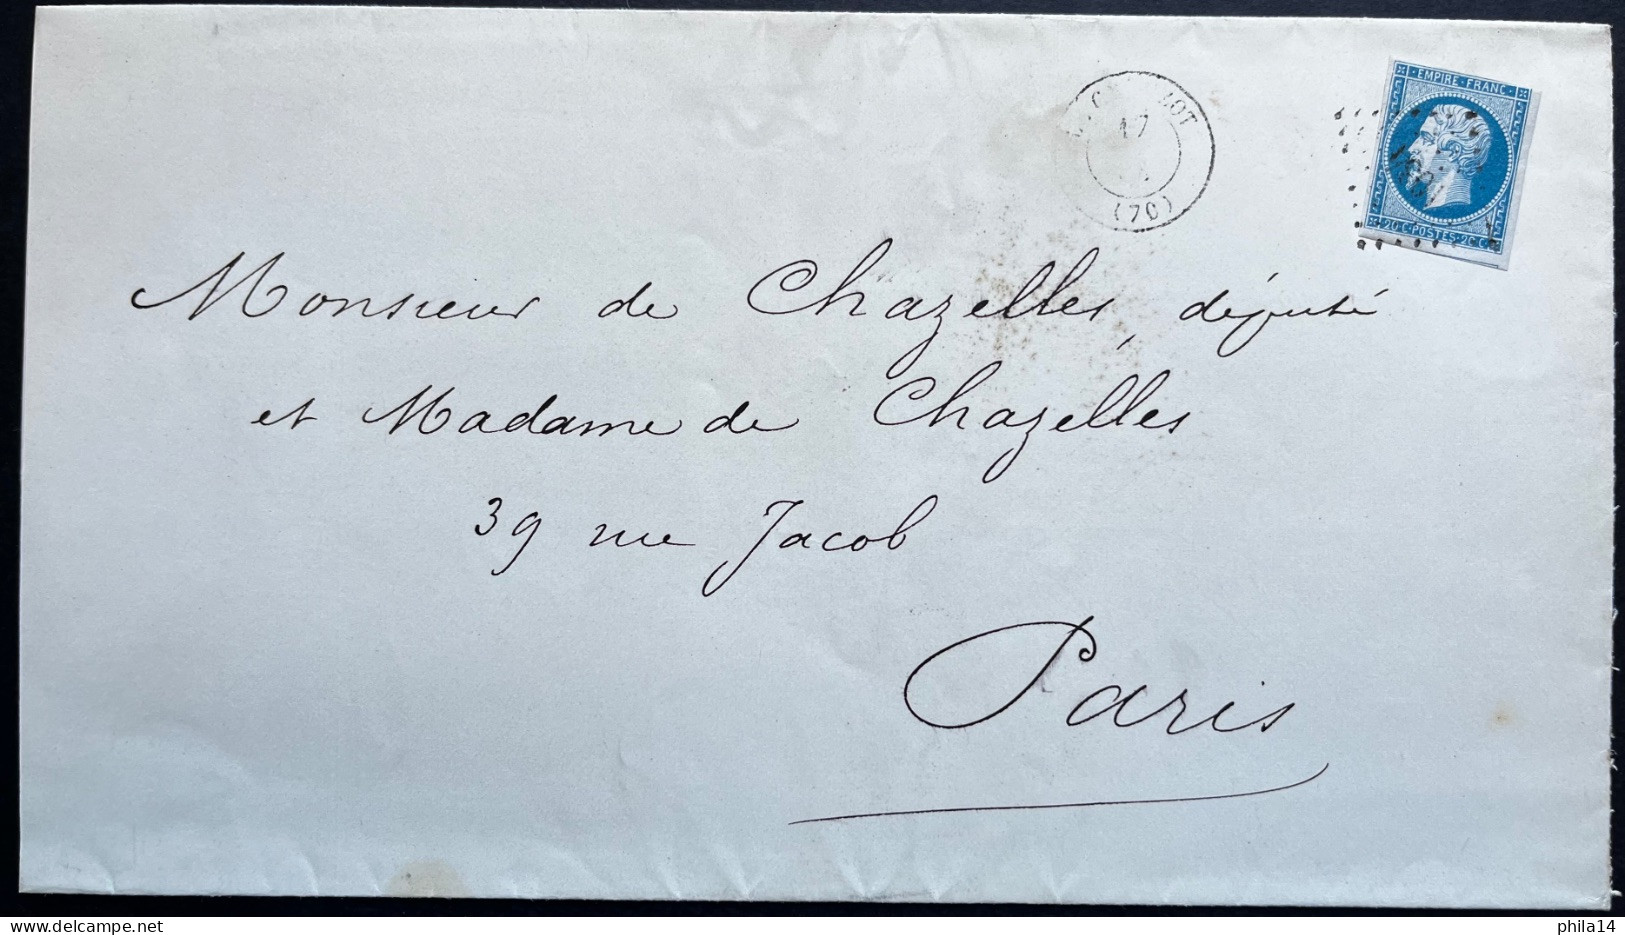 LOT
17
(70)
EMPIRE FRANC
1997
20 C · POSTES · 20 C
Monsieur de Chazelles, député
et Madame de Chazelles
39 rue Jacob
Paris
phila14